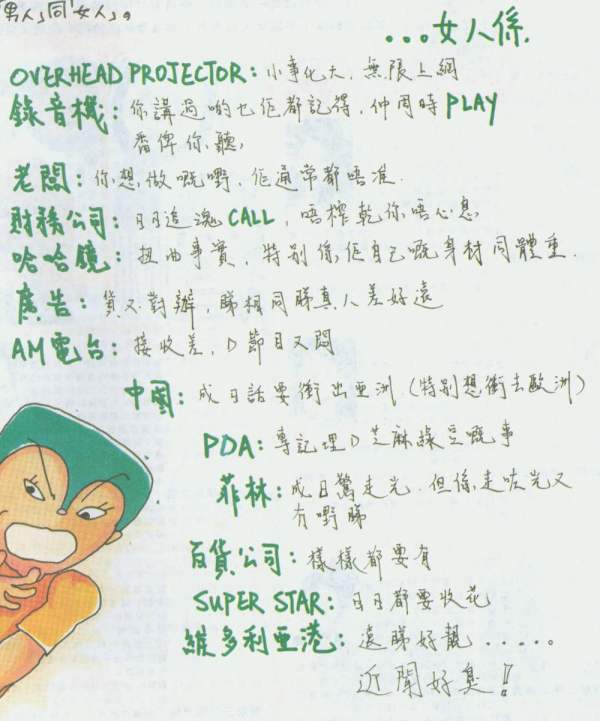 「男人」同「女人」。
...女人係
OVERHEAD PROJECTOR: 小事化大, 無限上綱
錄音機: 你講過啲乜佢都記得, 仲同時 PLAY
番俾你聽,
老闆: 你想做嘅嘢, 佢通常都唔准.
財務公司: 日日追魂 CALL, 唔榨乾你唔心息
哈哈鏡: 扭曲事實, 特別係佢自己嘅身材同體重.
廣告: 貨不對辦, 睇相同睇真人差好遠
AM電台: 接收差, D節目又悶
中國: 成日話要衝出亞洲 (特別想衝去歐洲)
PDA: 專記埋D芝麻綠豆嘅事
菲林: 成日驚走光, 但係走咗光又
冇嘢睇
百貨公司: 樣樣都要有
SUPER STAR: 日日都要收花
維多利亞港: 遠睇好靚.....。
近聞好臭!!